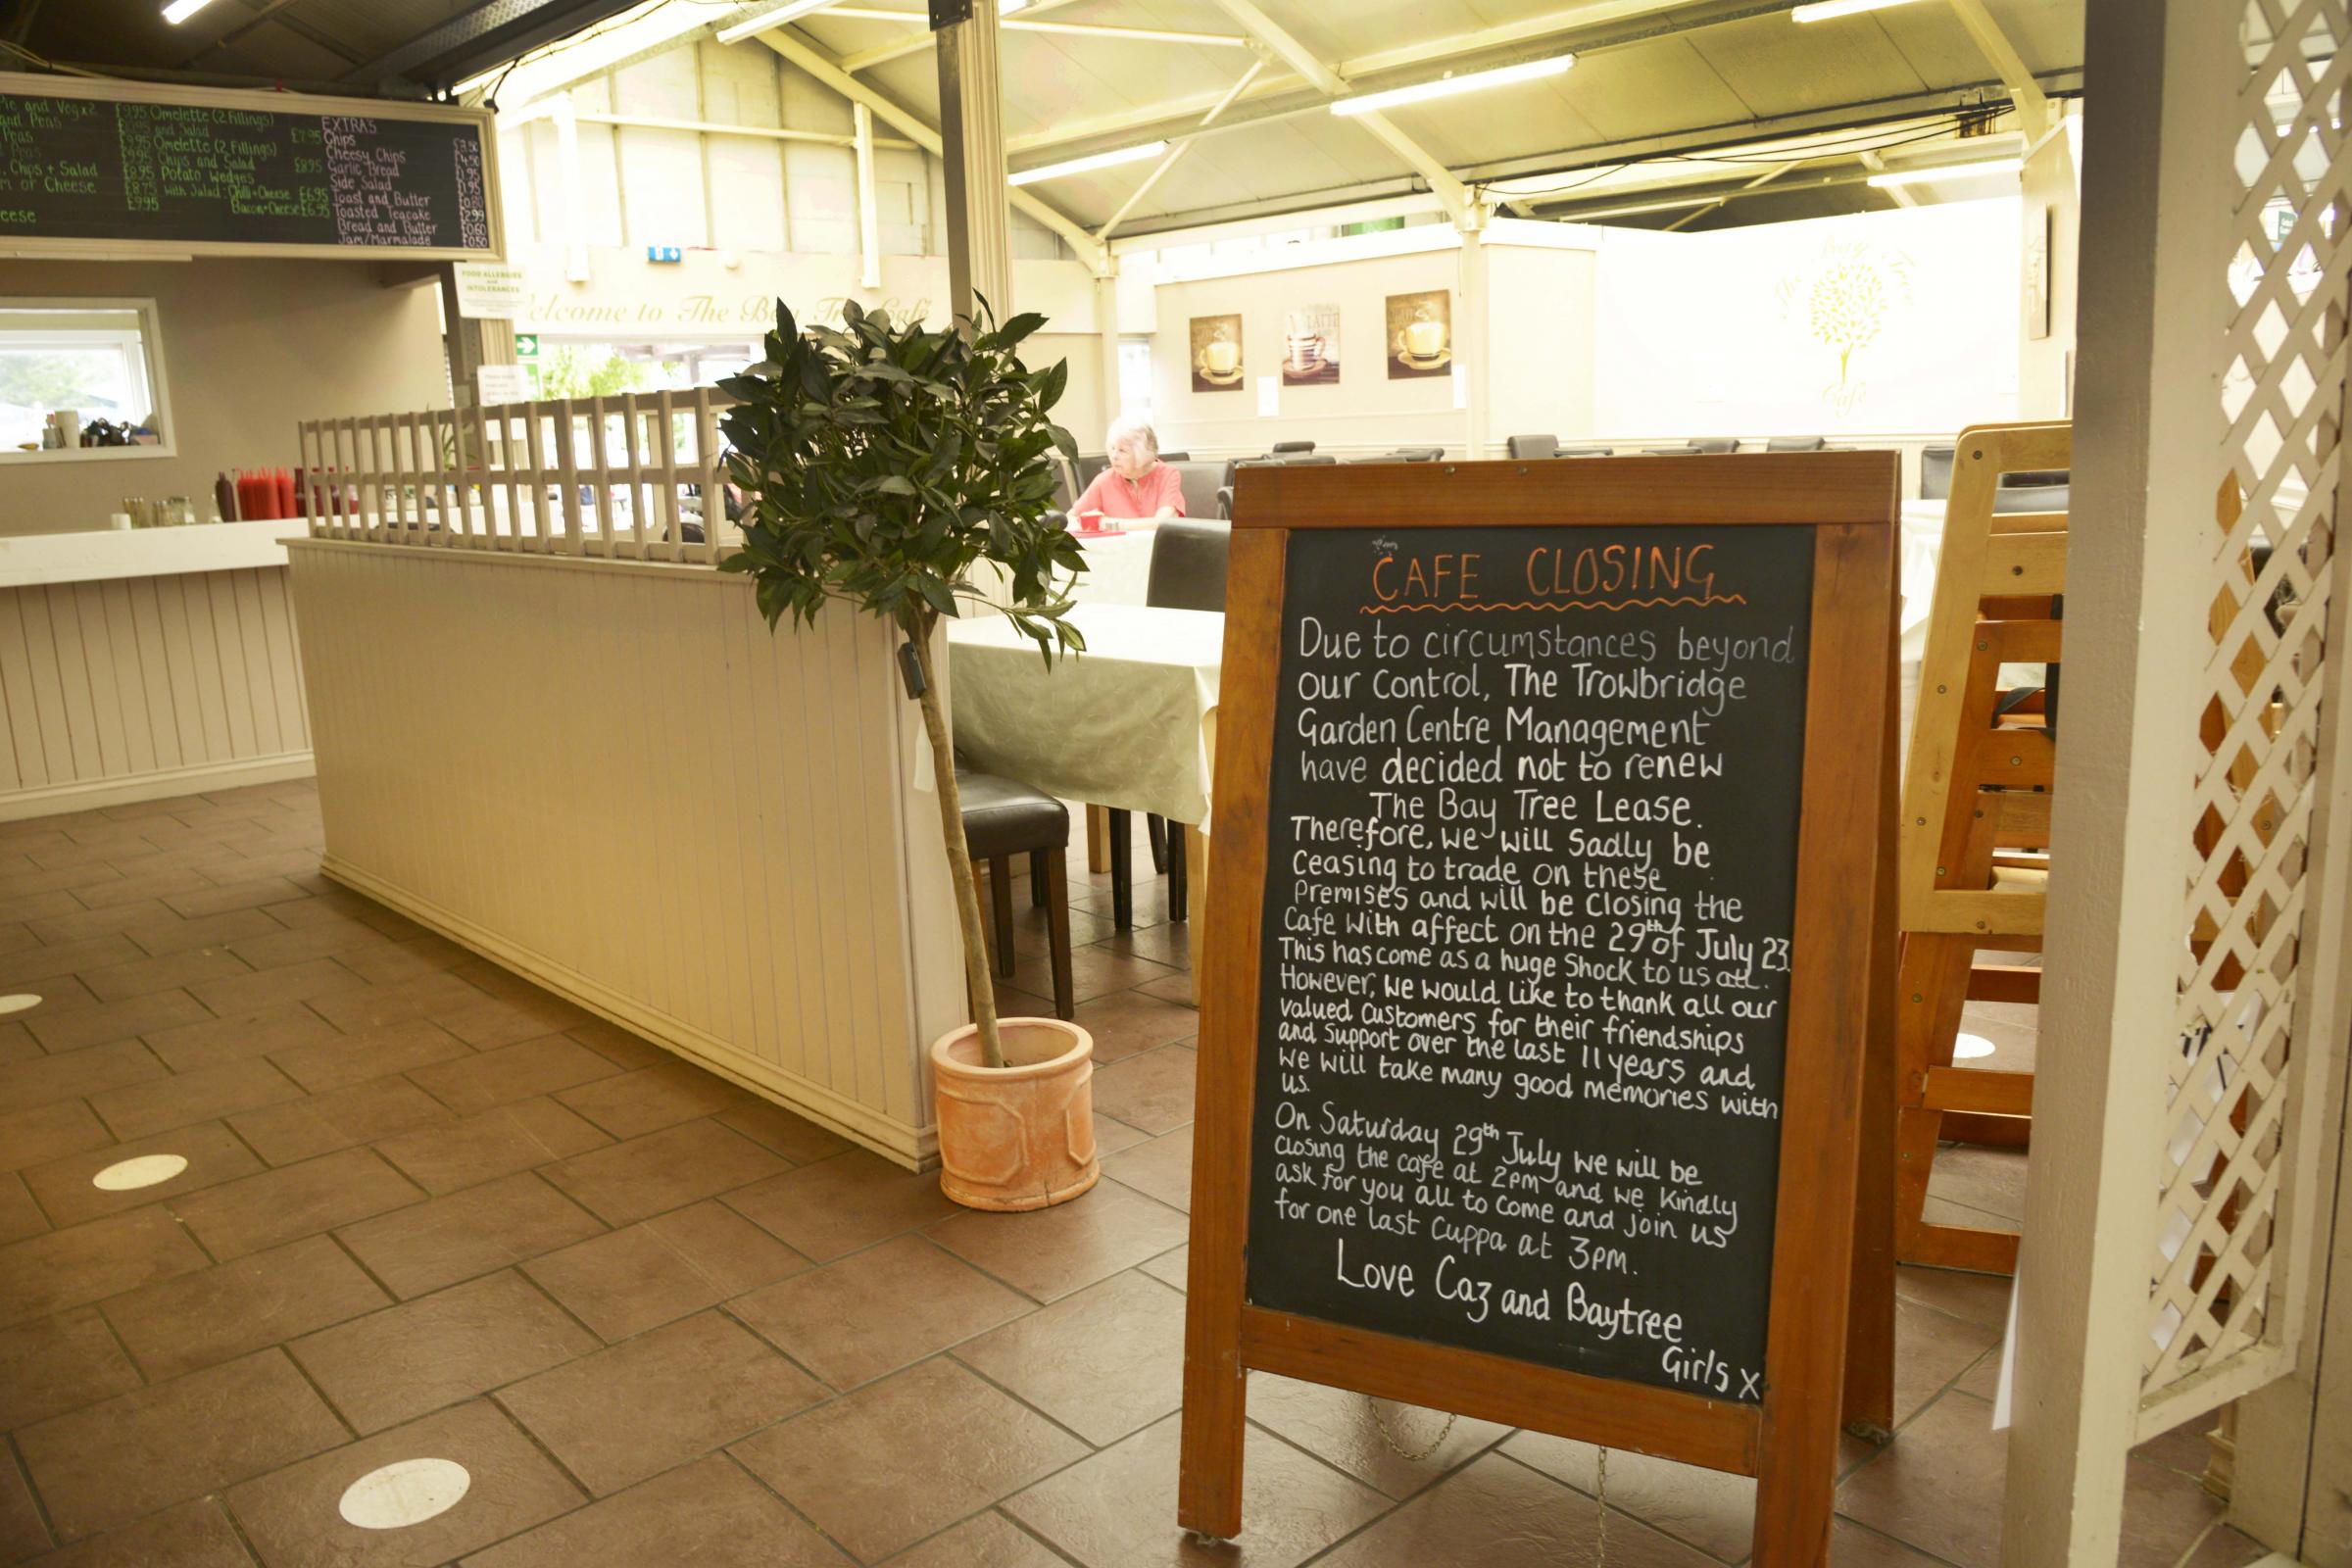 Pie and Veg x2 £9.95
and Peas
Peas
Chips + Salad £8.95
or Cheese £8.75
£9.95
eese
Omelette (2 Fillings)
and Salad £7.95
Omelette (2 Fillings)
Chips and Salad £8.95
Potato Wedges
with Salad: Chilli+Cheese £6.95
Bacon+Cheese £6.95
EXTRAS
Chips £3.50
Cheesy Chips £4.50
Garlic Bread
Side Salad
Toast and Butter
Toasted Teacake
Bread and Butter £0.60
Jam/Marmalade £0.50
FOOD ALLERGIES
and
INTOLERANCES
Welcome to The Bay Tree Café
LATTE
The Bay Tree
Café
CAFE CLOSING
Due to circumstances beyond
our control, The Trowbridge
Garden Centre Management
have decided not to renew
The Bay Tree Lease.
Therefore, we will sadly be
Ceasing to trade on these
Premises and will be closing the
Cafe with affect on the 29th of July 23.
This has come as a huge shock to us all.
However, we would like to thank all our
valued customers for their friendships
and support over the last 11 years and
we will take many good memories with
us.
On Saturday 29th July we will be
closing the cafe at 2pm and we kindly
ask for you all to come and join us
for one last cuppa at 3pm.
Love Caz and Baytree
Girls x